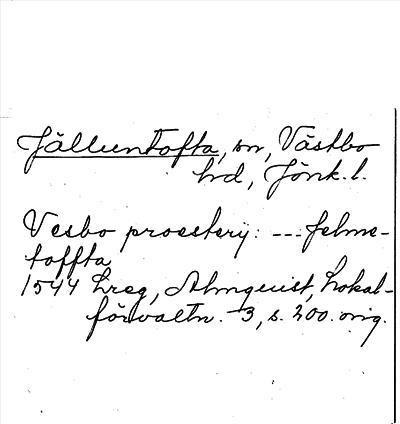 Jälluntofta, sn, Västbo
hd, Jönk. l.
Vesbo prosterij: --- Jelme-
toffta
1544 Lreg, Almquist, Lokal-
förvaltn. 3, s. 200. orig.